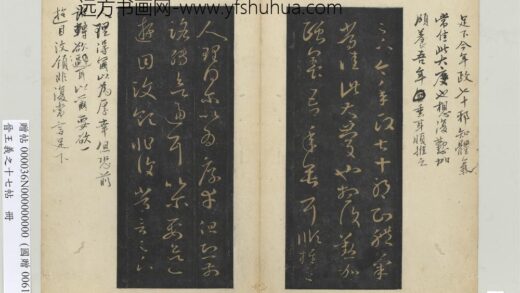 远方书画网-www.yfshuhua.com
足下今年政七十耶知體氣
常佳此大慶也想復懃加
頤養吾年垂耳順推之
足下今年政七十耶知體氣
常佳此大慶也想復懃加
頤養吾年垂耳順推之
人理得爾以為厚幸但恐前
路轉欲逼耳以爾要欲一
遊目汶領非復常言足下
理得爾以為厚幸但恐前
路轉欲逼耳以爾要欲一
遊目汶領非復常言足下
贈帖 000036N000000000 (國贈 0061
晉王羲之十七帖 冊